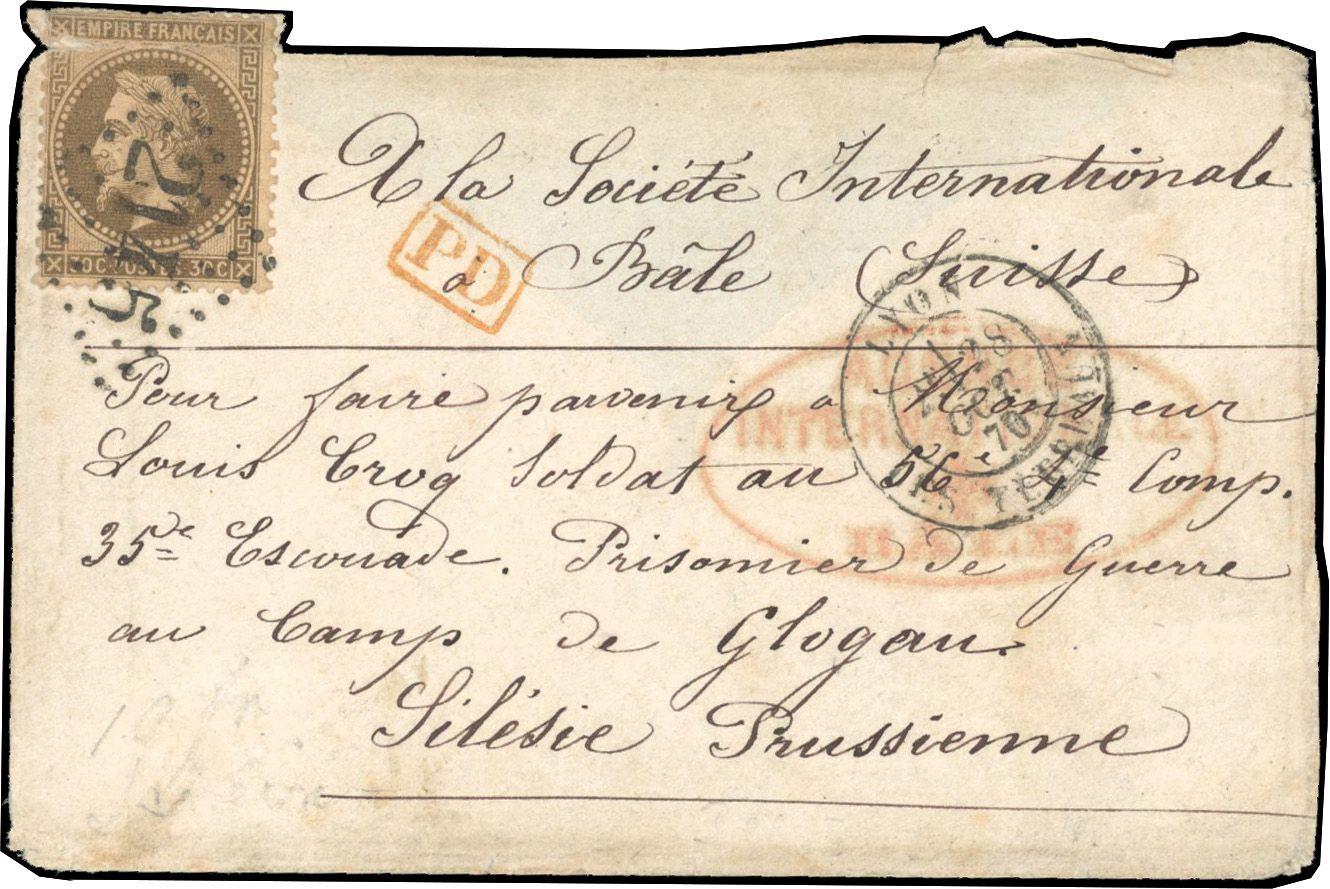 EMPIRE FRANÇAIS
2145
30C POSTES 30C
A la Société Internationale
PD
à Bâle (Suisse)
LYON
28
OCT.
70
LES TERREAUX
AGENCE
INTERNATIONALE
BALE
Pour faire parvenir a Monsieur
Louis Croq Soldat au 56e 4e Comp.
35de Escouade. Prisonnier de Guerre
au Camp de Glogau.
Silésie Prussienne